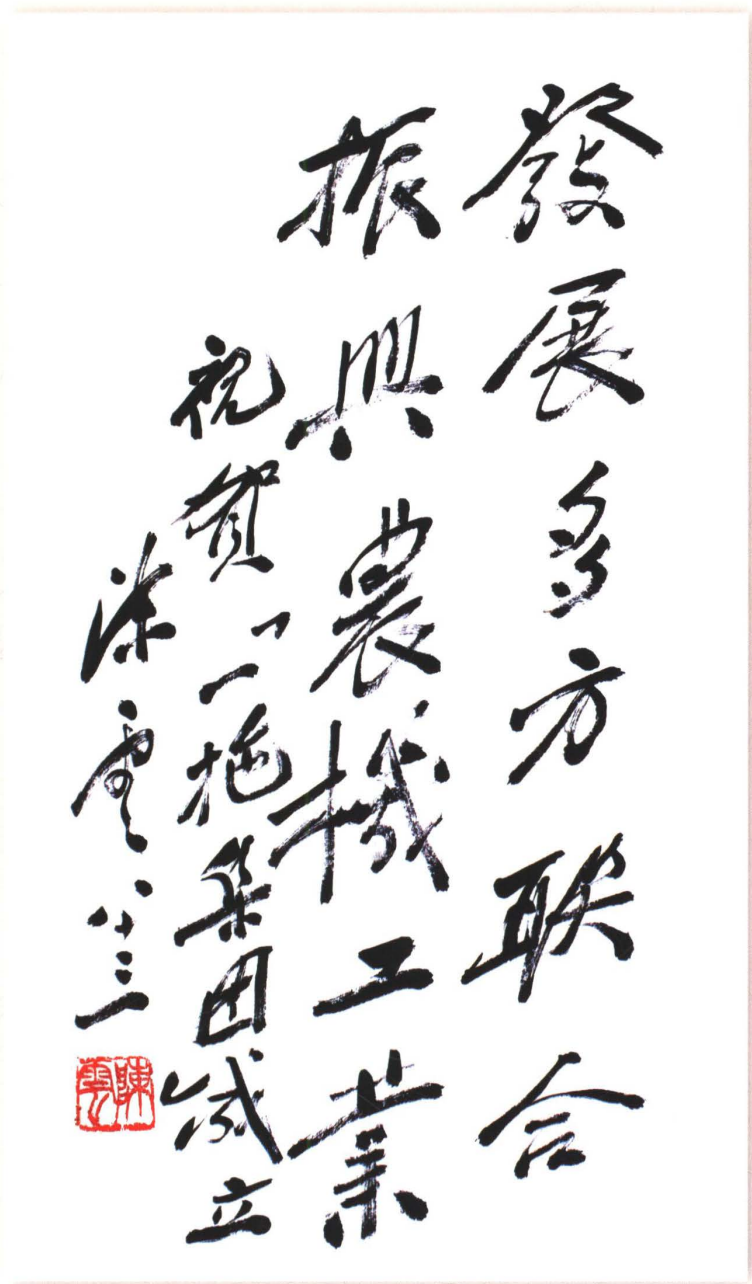 發展多方联合
振興農械工業
祝賀「一拖集团成立
陈雲 八十三
陳雲